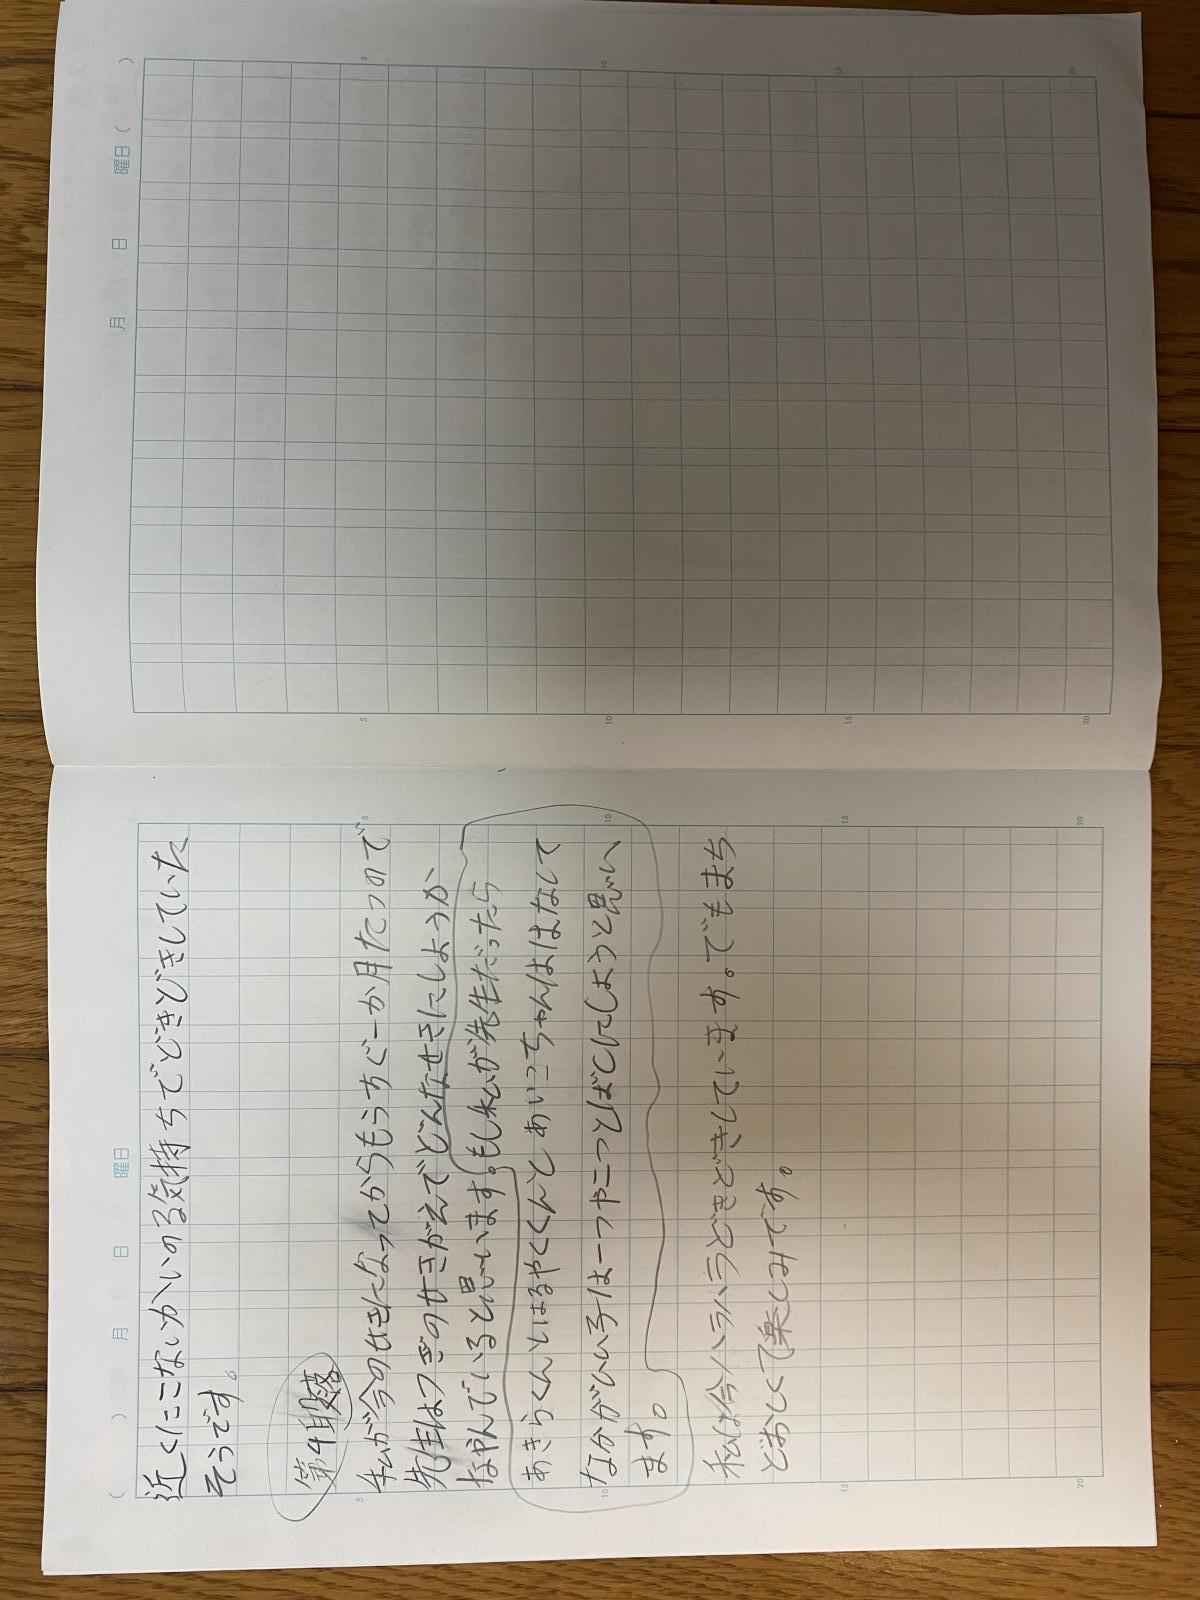 近くにこないかいのる気持ちでどきどきしていた
そうです。
第4段落
私が今のせきになってからもうすぐ一か月たつので
先生はつぎのせきがえでどんなせきにしようか
なやんでいると思います。もし私が先生だったら
あきらくんとはるやくんと あいこちゃんははなして
なかがいい子は一つや二つとばしにしようと思い
ます。
私は今ハラハラどきどきしています。でもまち
どおしくて楽しみです。
月 日 曜日
( )
5
10
15
20
月 日 曜日 ( )
5
10
15
20